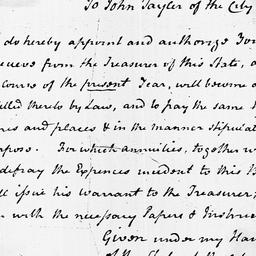 To John Tayler of the City
do hereby appoint and authorize You
receive from the Treasurer of this State, a
Course of the present Year, will become
thereto by Law, and to pay the same
and places & in the manner stipulat
purpose. For which annuities, together w
defray the Expences incident to this B
issue his warrant to the Treasurer,
with the necessary Papers & Instruc
Given under my Han